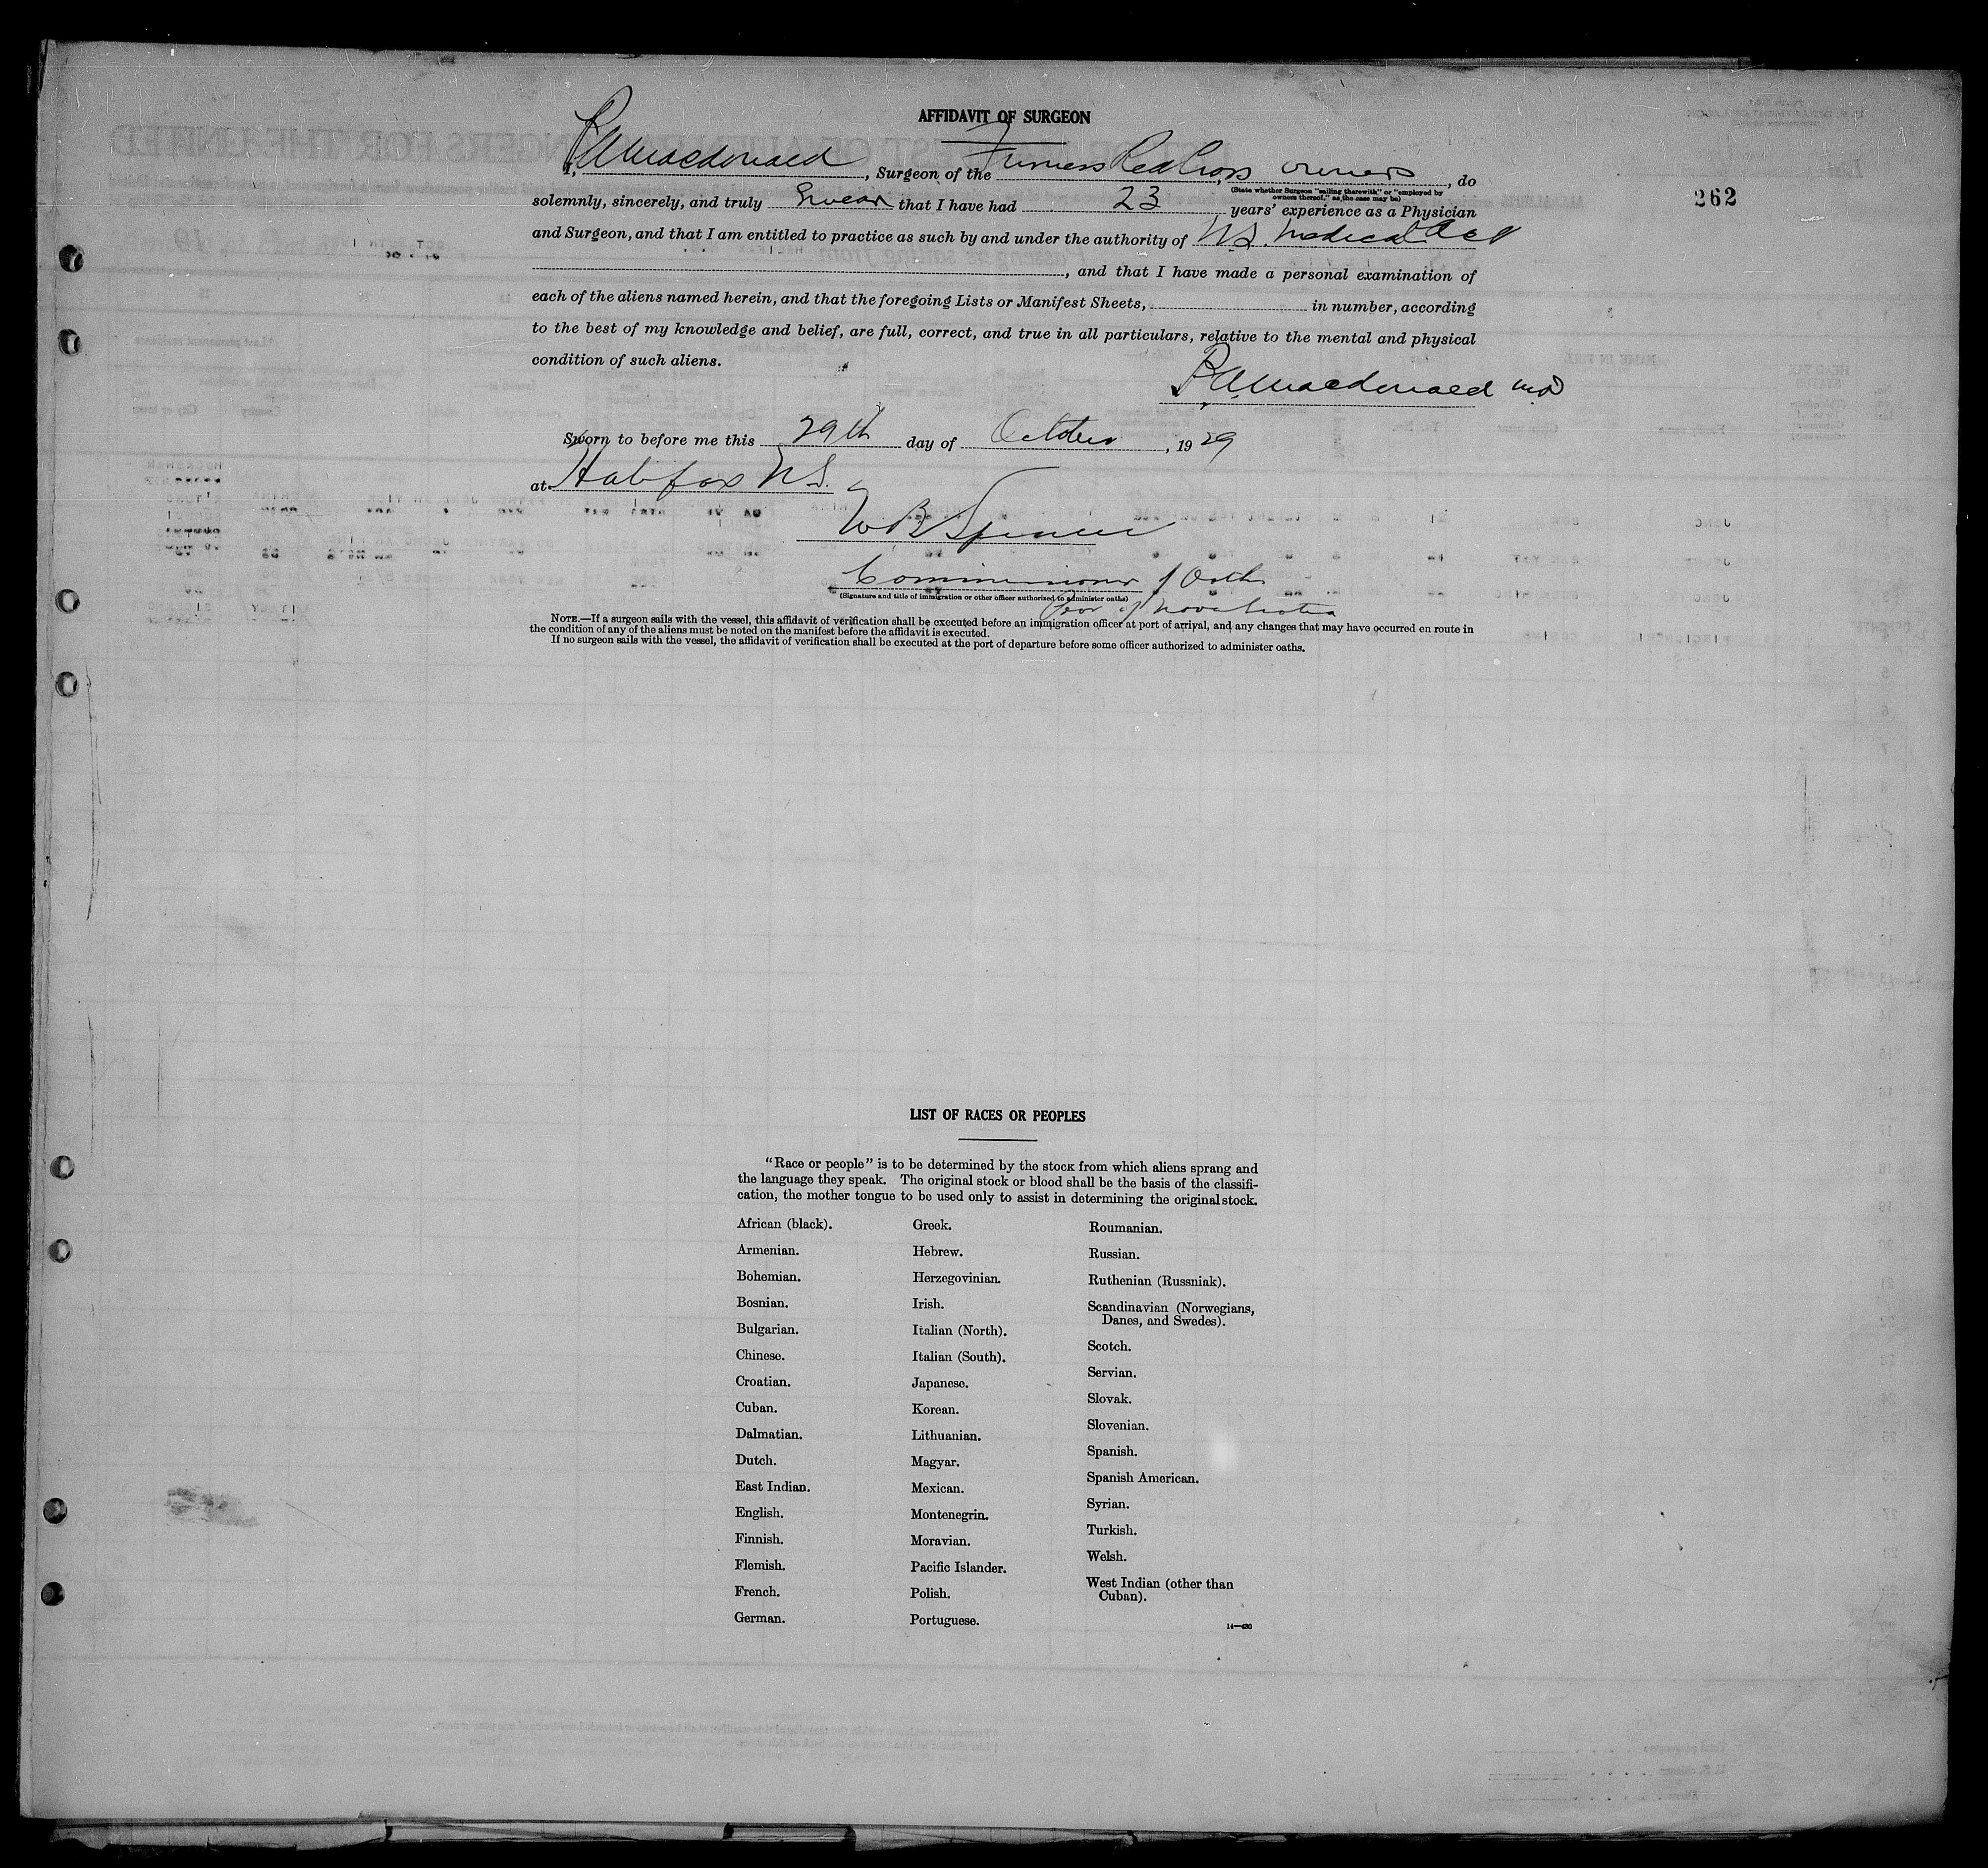 AFFIDAVIT OF SURGEON
I, Macdonald, Surgeon of the Furness Red Cross, owners, do
(State whether Surgeon "sailing therewith" or "employed by
owners thereof," as the case may be)
262
solemnly, sincerely, and truly Swear that I have had 23 years' experience as a Physician
and Surgeon, and that I am entitled to practice as such by and under the authority of N.S. Medical Act
, and that I have made a personal examination of
each of the aliens named herein, and that the foregoing Lists or Manifest Sheets, in number, according
to the best of my knowledge and belief, are full, correct, and true in all particulars, relative to the mental and physical
condition of such aliens.
Macdonald MD
Sworn to before me this 29th day of October, 1929
at Halifax N.S.
W B Spencer
Commissioner of Oaths
(Signature and title of immigration or other officer authorized to administer oaths)
Prov of Nova Scotia
NOTE.—If a surgeon sails with the vessel, this affidavit of verification shall be executed before an immigration officer at port of arrival, and any changes that may have occurred en route in
the condition of any of the aliens must be noted on the manifest before the affidavit is executed.
If no surgeon sails with the vessel, the affidavit of verification shall be executed at the port of departure before some officer authorized to administer oaths.
LIST OF RACES OR PEOPLES
"Race or people" is to be determined by the stock from which aliens sprang and
the language they speak. The original stock or blood shall be the basis of the classifi-
cation, the mother tongue to be used only to assist in determining the original stock.
African (black).
Armenian.
Bohemian.
Bosnian.
Bulgarian.
Chinese.
Croatian.
Cuban.
Dalmatian.
Dutch.
East Indian.
English.
Finnish.
Flemish.
French.
German.
Greek.
Hebrew.
Herzegovinian.
Irish.
Italian (North).
Italian (South).
Japanese.
Korean.
Lithuanian.
Magyar.
Mexican.
Montenegrin.
Moravian.
Pacific Islander.
Polish.
Portuguese.
Roumanian.
Russian.
Ruthenian (Russniak).
Scandinavian (Norwegians,
Danes, and Swedes).
Scotch.
Servian.
Slovak.
Slovenian.
Spanish.
Spanish American.
Syrian.
Turkish.
Welsh.
West Indian (other than
Cuban).
14—430